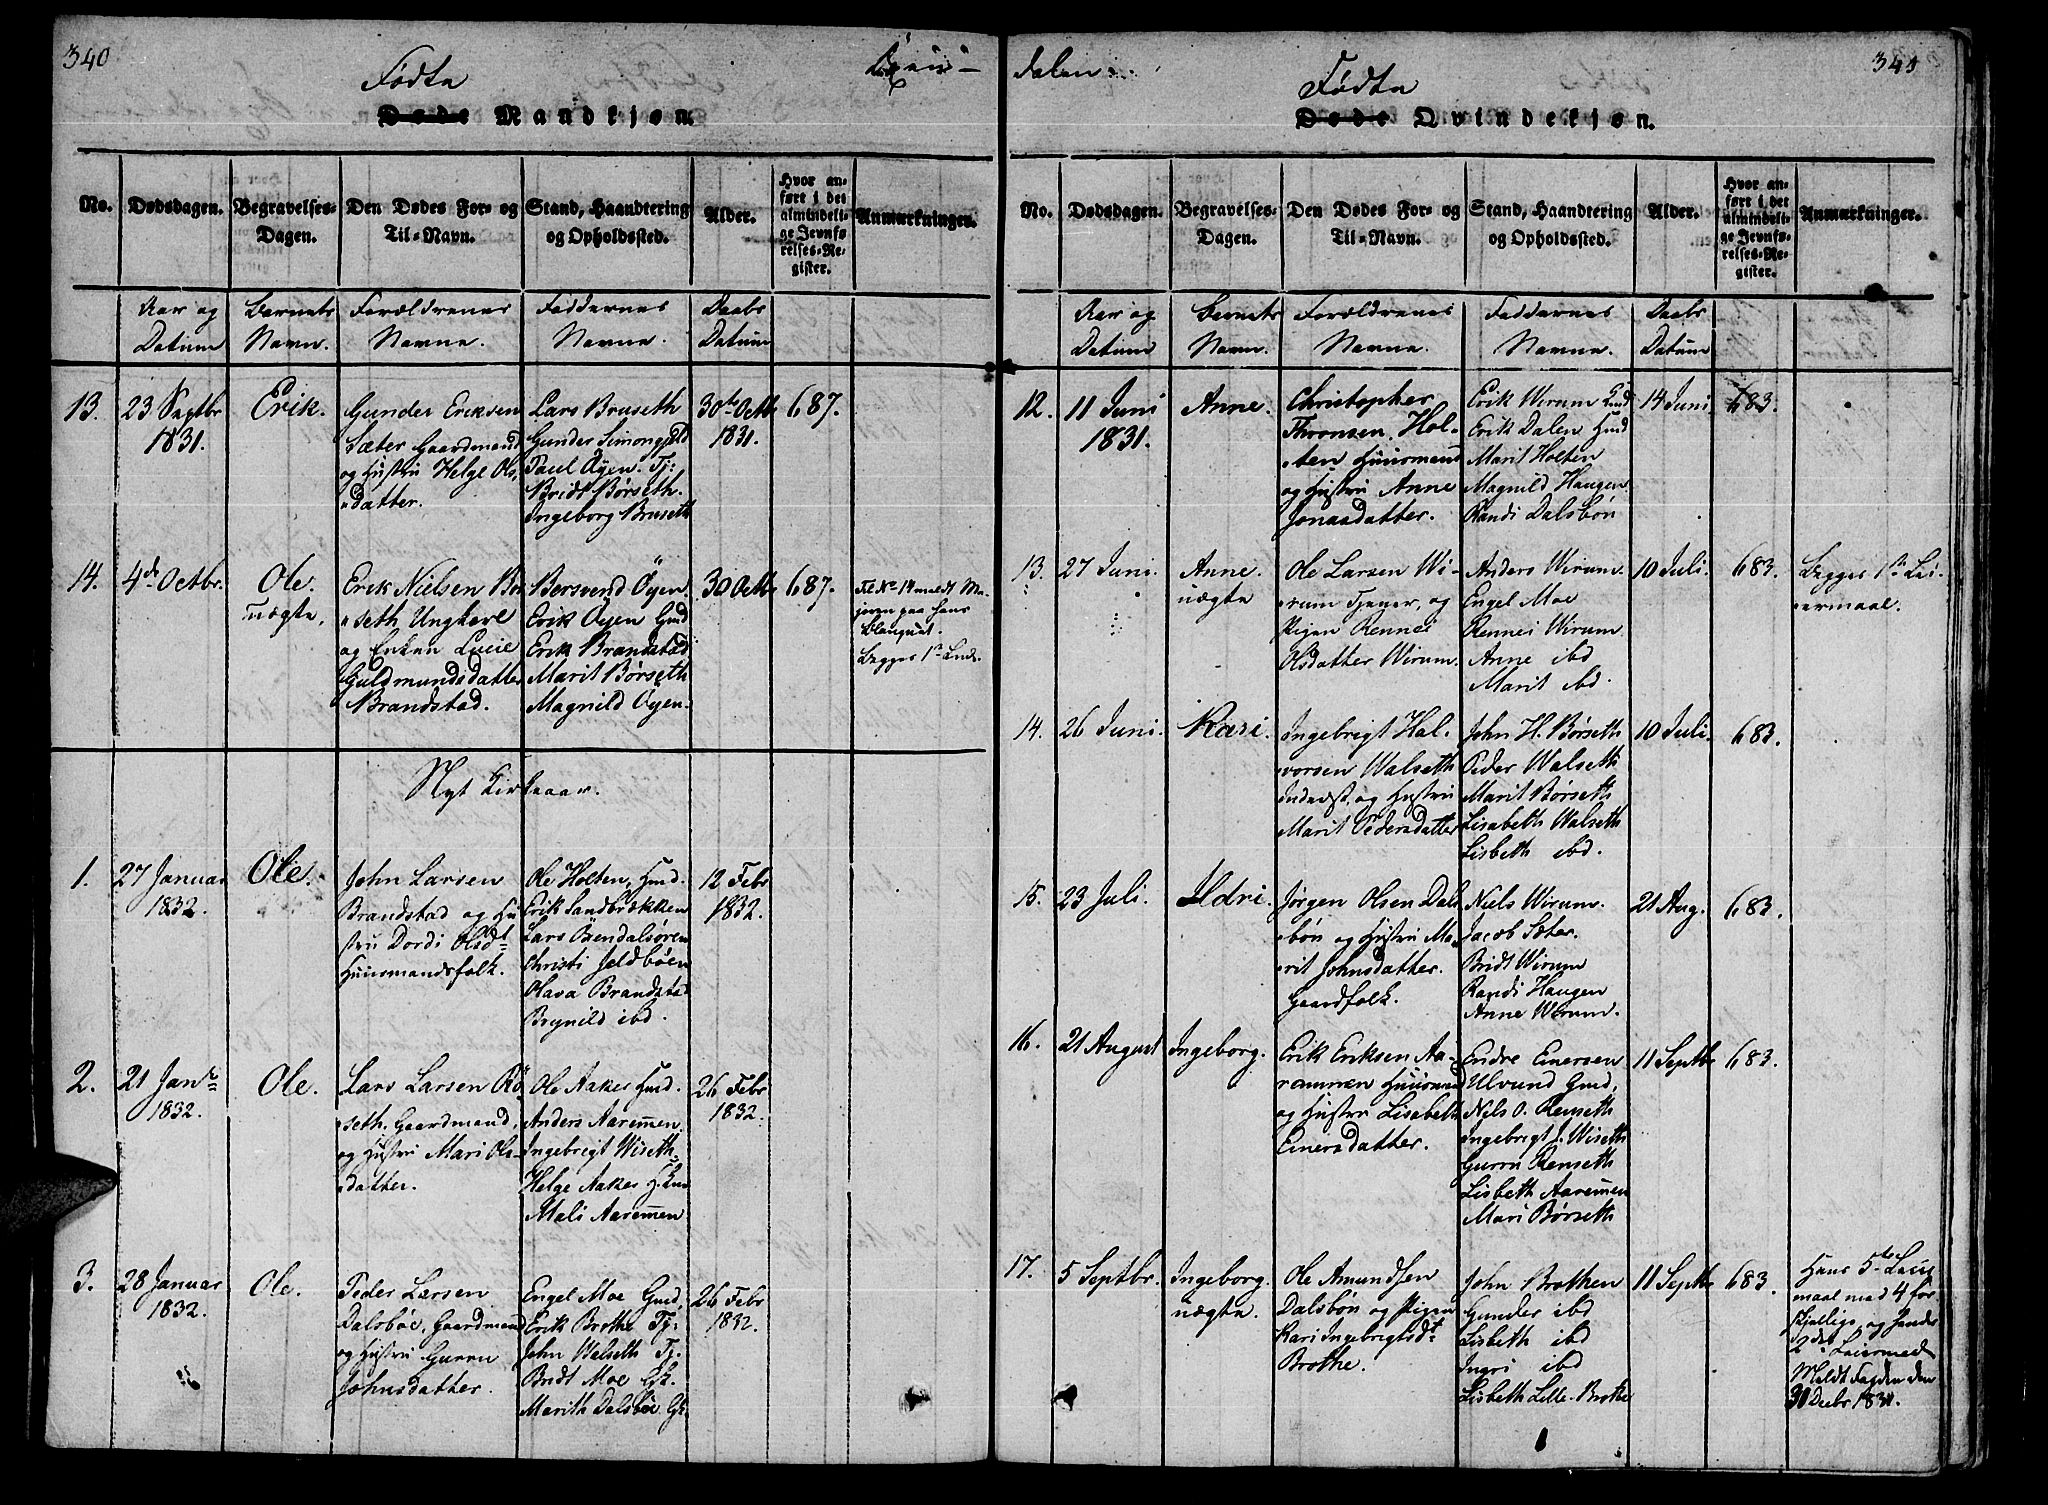 340
Fødte
Døde Mandkjøn.
No.
Dødsdagen.
Begravelses-
Dagen.
Den Dødes For- og
Til-Navn.
Stand, Haandtering
og Opholdssted.
Alder.
Hvor an-
ført i det
almindeli-
ge Jevnfø-
relses-Re-
gister.
Anmærkninger.
Aar og
Datum
Barnets
Navn.
Forældrenes
Navne.
Faddernes
Navne.
Daabs
Datum
13.
23 Septbr
1831.
Erik.
Gunder Eriksen
Sæter Gaardmand
og Hustru Helge Ols
datter.
Lars Bruseth
Gunder Simong
Paul Øyen. Tj:
Bridt Børseth.
Ingeborg Bruseth
30te Octb
1831.
687.
14.
4de Octbr.
Ole.
uægte.
Erik Nielsen Bør
seth Ungkarl
og Enken Lucie
Guldmundsdatter
Brandstad.
Bersvend Øyen
Erik Øyen Gmd
Erik Brandstad
Marit Børseth
Magnild Øyen.
30 Octb
687.
Til No 14 meldt Ma-
joren paa hans
Blanquet.
Begges 1ste Leierm.
Nyt Kirkeaar.
1.
27 Januar
1832.
Ole.
John Larsen
Brandstad og Hu
stru Dordi Olsdt
Huusmandsfolk.
Ole Holten, Hmd.
Erik Sandbrækken
Lars Bendalsøren
Christi Jeldbøen
Olava Brandstad
Brynild ibd.
12 Febr
1832.
2.
21 Janr
1832.
Ole.
Lars Larsen Rø
seth. Gaardmand,
og Hustru Mari Ols-
datter.
Ole Aakes Hmd.
Anders Aaremmen.
Ingebrigt Wiseth
Helge Aakes
Mali Aaremmen
26 Febr
1832.
3.
28 Januar
1832.
Ole.
Peder Larsen
Dalsbøe, Gaardmand
og Hustru Guren
Johnsdatter.
Engel Moe Gmd,
Erik Brothe Tj:
John Walseth Tj.
Bridt Moe Gk.
Marith Dalsbøe Gk
26 Febr
1832.
dalen
341
Fødte
Døde Qvindekjøn.
No.
Dødsdagen.
Begravelses-
Dagen.
Den Dødes For- og
Til-Navn.
Stand, Haandtering
og Opholdssted.
Alder.
Hvor an-
ført i det
almindeli-
ge Jevnfø-
relses-Re-
gister.
Anmærkninger.
Aar og
Datum
Barnets
Navn.
Forældrenes
Navne.
Faddernes
Navne.
Daabs
Datum
12.
11 Juni
1831.
Anne.
Christopher
Thronsen, Hol-
ten Huusmand
og Hustru Anne
Jonasdatter.
Erik Wirum Gmd
Erik Dalen Hmd
Marit Holten
Magnild Haugen
Randi Dalsbøn
14 Juni
683.
13.
27 Juni
Anne.
uægte
Ole Larsen Wi-
rum Tjener, og
Pigen Rennei
Olsdatter Wirum.
Anders Wirum.
Engel Moe
Rennei Wirum
Anne ibd
Marit ibd.
10 Juli.
683.
Begges 1ste Lei-
ermaal.
14.
26 Juni.
Kari.
Ingebrigt Hal-
vorsen Walseth
Inderst, og Hustru
Marit Pedersdatter
John H. Børseth
Peder Walseth
Marit Børseth
Lisabeth Walseth
Lisbeth ibd.
10 Juli.
683.
15.
23 Juli.
Ildri.
Jørgen Olsen Dals
bøn og Hustru Ma-
rit Johnsdatter.
Gaardfolk.
Niels Wirum.
Jacob Sæter.
Bridt Wirum
Randi Haugen
Anne Wirum.
21 Aug.
683.
16.
21 August
Ingeborg.
Erik Eriksen Aa-
remmen Huusmand
og Hustru Lisabeth
Einersdatter.
Endre Enersen
Ulvund Gmd,
Nils O. Renseth
Ingebrigt J. Wiseth
Guren Renseth
Lisbeth Aaremmen
Mari Børseth
11 Septbr
683.
17.
5 Septbr.
Ingeborg.
uægte.
Ole Amundsen
Dalsbøn og Pigen
Kari Ingebrigtsdt
Brothe.
John Brothen
Gunder ibd
Lisbeth ibd
Ingri ibd
Lisbeth Lille-Brothe
11 Septbr
683.
Hans 5te Leier
maal med 4 for
skjellige, og hendes
Leiermaal
Meldt Fogden den
31 Decbr 1831.